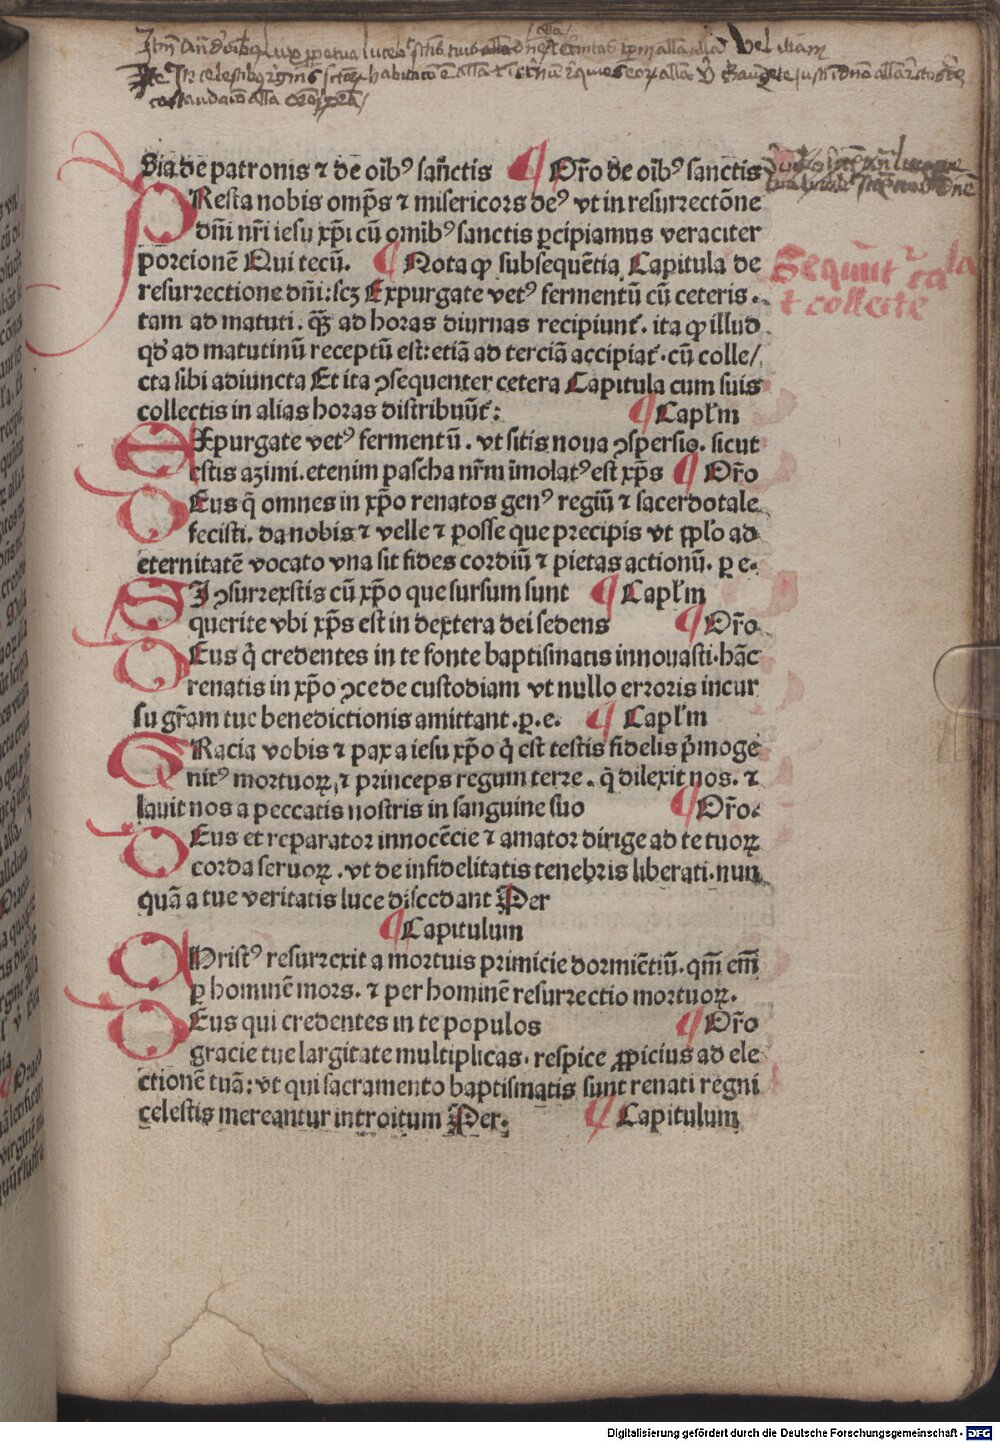 lux perpetua lucebit sctis tuis dne et eternitas tpm alla alla Vel
In celestibꝫ habitatio e alla requies eoꝝ alla
alla
uia de patronis ⁊ de oib⁹ sanctis ¶ Oro de oib⁹ sanctis
PResta nobis omps ⁊ misericors de⁹ vt in resurrectōne
dñi nri iesu xp̄i cū omib⁹ sanctis ꝑcipiamus veraciter
porcionē Qui tecū. ¶ Nota ꝙ subsequētia Capitula de
resurrectione dñi: scꝫ Expurgate vet⁹ fermentū cū ceteris.
tam ad matuti. ꝙꝫ ad horas diurnas recipiunt̄. ita ꝙ illud
qđ ad matutinū receptū est: etiā ad terciā accipiat̄. cū colle/
cta sibi adiuncta Et ita ꝯsequenter cetera Capitula cum suis
collectis in alias horas distribuūt̄: ¶ Capl̄m
EXpurgate vet⁹ fermentū. vt sitis noua ꝯspersio. sicut
estis azimi. etenim pascha nr̄m īmolat⁹ est xp̄s ¶ Or̄o
DEus q̄ omnes in xp̄o renatos gen⁹ regiū ⁊ sacerdotale
fecisti. da nobis ⁊ velle ⁊ posse que precipis vt ꝓpl̄o ad
eternitatē vocato vna sit fides cordiū ⁊ pietas actionū. ꝑ e.
SI ꝯsurrexstis cū xp̄o que sursum sunt ¶ Capl̄m
querite vbi xp̄s est in dextera dei sedens ¶ Or̄o
DEus q̄ credentes in te fonte baptismatis innouasti. hāc
renatis in xp̄o ꝯcede custodiam vt nullo erroris incur
su gr̄am tue benedictionis amittant. ꝑ. e. ¶ Capl̄m
GRacia vobis ⁊ pax a iesu xp̄o q̄ est testis fidelis p̄moge
nit⁹ mortuoꝝ, ⁊ princeps regum terre. q̄ dilexit nos. ⁊
lauit nos a peccatis nostris in sanguine suo ¶ Or̄o.
DEus et reparator innocēcie ⁊ amator dirige ad te tuoꝝ
corda seruoꝝ. vt de infidelitatis tenebris liberati. nun
quā a tue veritatis luce discedant Per
¶ Capitulum
CHrist⁹ resurrexit a mortuis primicie dormiētiū. qm̄ em̄
ꝑ hominē mors. ⁊ per hominē resurrectio mortuoꝝ.
DEus qui credentes in te populos ¶ Or̄o
gracie tue largitate multiplicas. respice ꝓpicius ad ele
ctionē tuā: vt qui sacramento baptismatis sunt renati regni
celestis mereantur introitum Per. ¶ Capitulum
Sequūt
t collecte
Digitalisierung gefördert durch die Deutsche Forschungsgemeinschaft - DFG